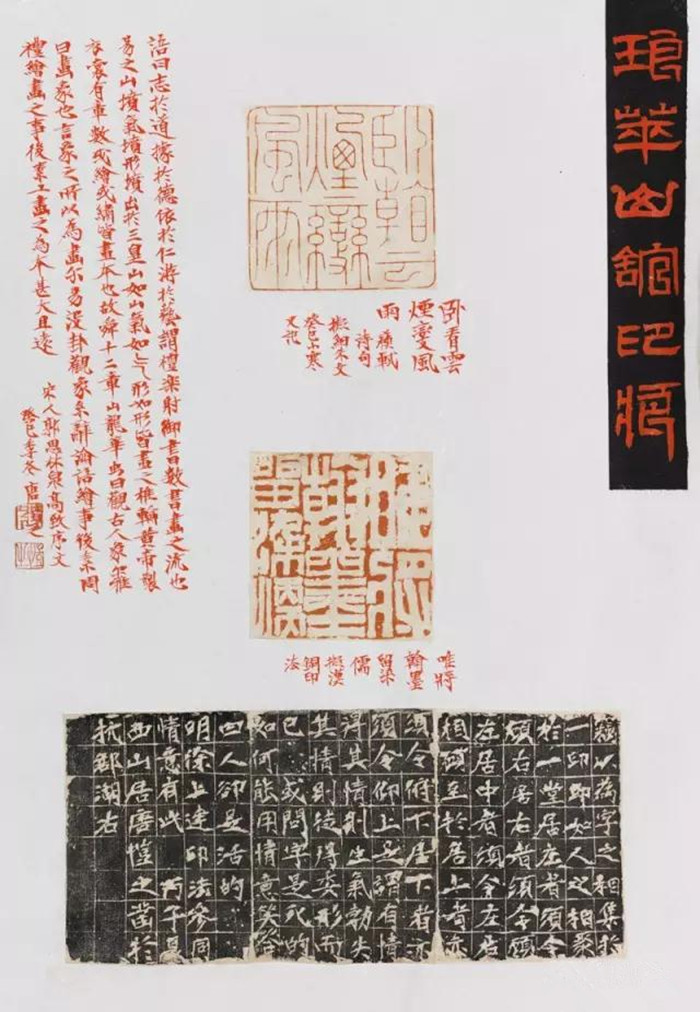 琅華山館印痕
卧看云煙變風雨
卧看雲
煙變風
雨 蘇軾
詩句
擬細朱文
癸巳小寒
又記
語曰志於道據於德依於仁游於藝謂禮樂射御書數書畫之流也
易之山墳氣墳形墳出於三皇山如山氣如气形如形皆畫之椎輪黃帝製
衣裳有章數或繪或繡皆畫本也故舜十二章山龍華虫曰觀古人象尔雅
曰畫象也言象之所以為畫尔易設卦觀象系辭論語繪事後素周
禮繪畫之事後素工畫之為本甚大且遠
宋人郭思林泉高致序文
癸巳季冬唐愷之
唯將翰墨留染濡
唯將
翰墨
留染
濡
擬漢
銅印
法
竊以為字之相集於
一印即如人之相聚
於一堂居左者須令
顧右居右者須令顧
左居中者須令左右
相顧至於居上者亦
須令俯下居下者亦
須令仰上是謂有情
得其情則生氣勃失
其情則徒得委形而
已 或問字是死的
如何能用情意笑答
曰人卻是活的
明徐上達印法參同
情意有此 丙子夏
西山居唐愷之凿於
杭郡湖右